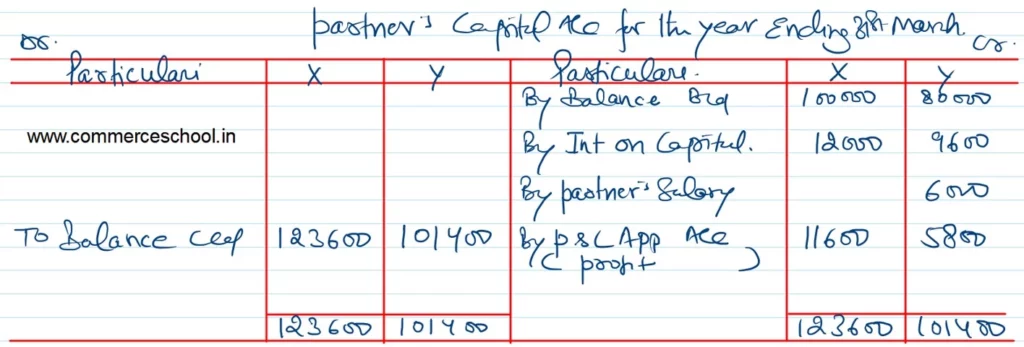 Partner's Capital Acc for the year Ending 31st March.
Dr. Cr.
Particulars X Y Particulars. X Y
By Balance B/d 100000 80000
www.commerceschool.in By Int on Capital. 12000 9600
By partner's Salary 6000
To Balance C/d 123600 101400 By P & L App Acc 11600 5800
( profit )
123600 101400 123600 101400